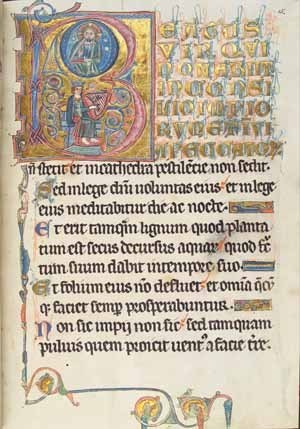 BEATUS
VIR QUI
NON ABIIT
IN CONSI
LIO IMPIO
RUM ET IN VI
stetit et in cathedra pestilencie non sedit.
Sed in lege dñi uoluntas eius et in lege
eius meditabitur die ac nocte.
Et erit tamqm lignum quod planta
tum est secus decursus aquar quod fr̄
tum suum dabit in tempore suo.
Et folium eius nō defluet et omia qcq
q faciet semp prosperabuntur.
Non sic impij non sic sed tamquam
puluis quem proicit uent9 a facie t̄re.